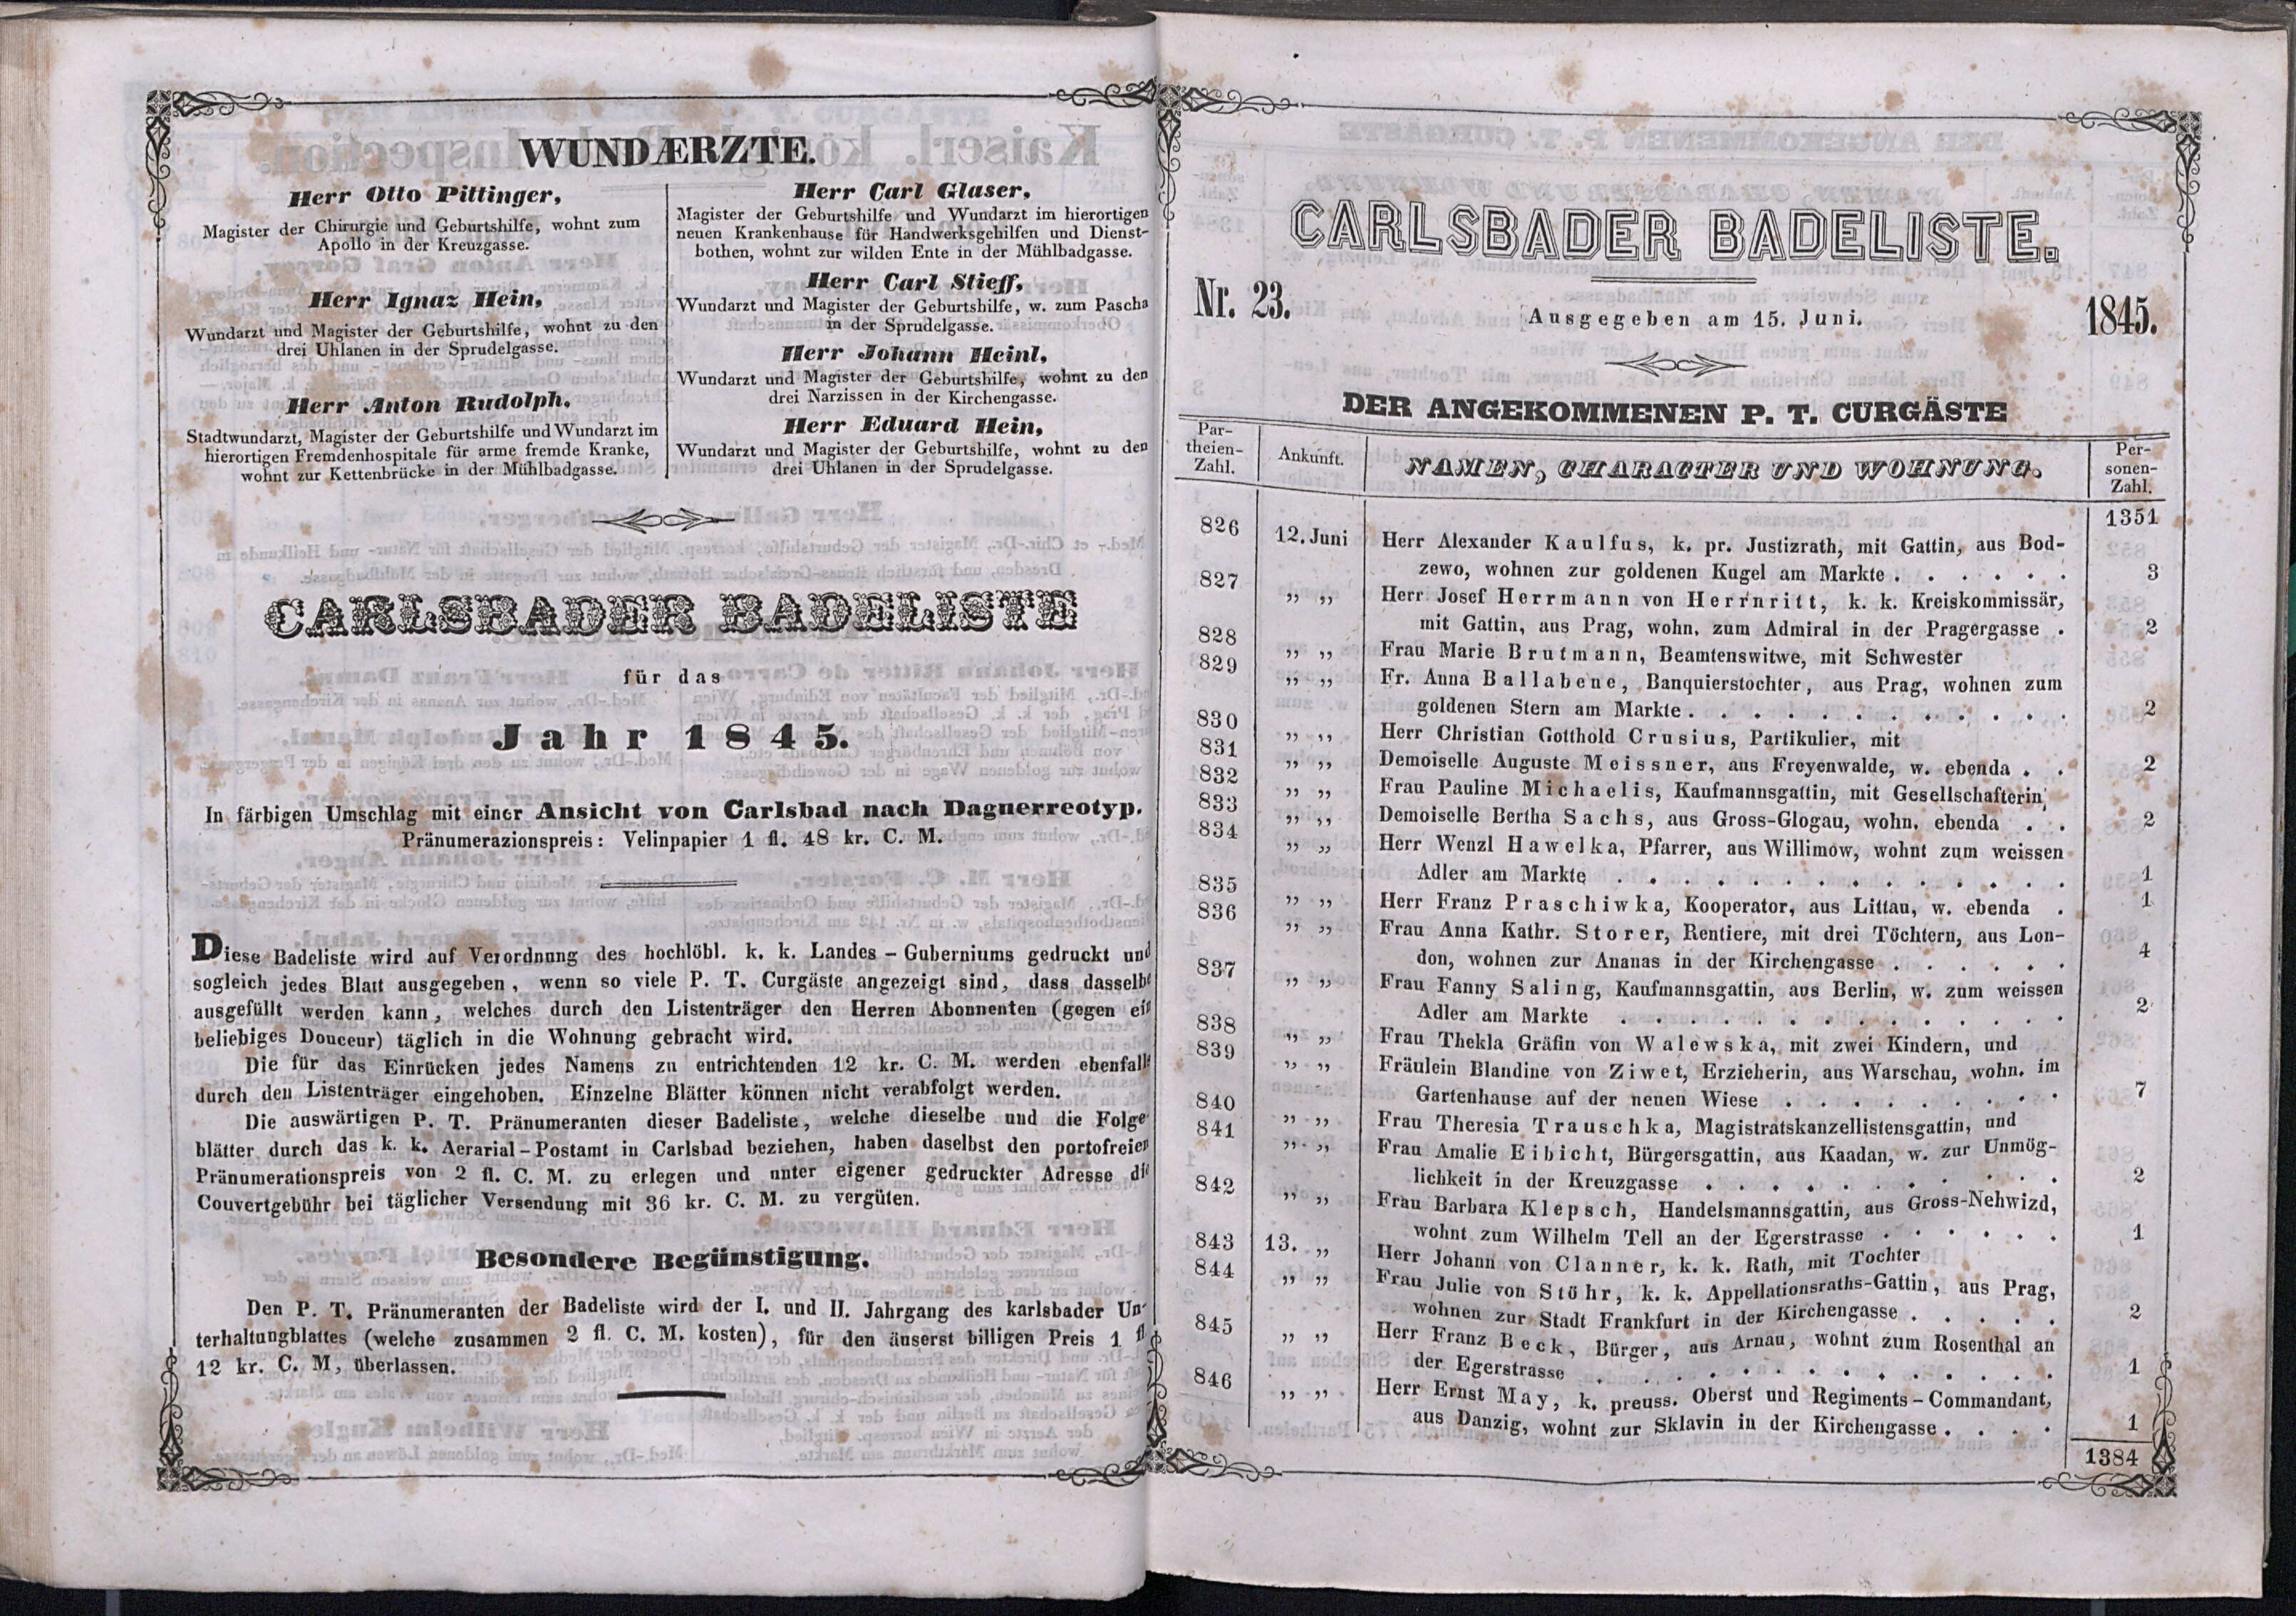 WUNDÆRZTE.
Herr Otto Pittinger,
Magister der Chirurgie und Geburtshilfe, wohnt zum
Apollo in der Kreuzgasse.
Herr Ignaz Hein,
Wundarzt und Magister der Geburtshilfe, wohnt zu den
drei Uhlanen in der Sprudelgasse.
Herr Anton Rudolph,
Stadtwundarzt, Magister der Geburtshilfe und Wundarzt im
hierortigen Fremdenhospitale für arme fremde Kranke,
wohnt zur Kettenbrücke in der Mühlbadgasse.
Herr Carl Glaser,
Magister der Geburtshilfe und Wundarzt im hierortigen
neuen Krankenhause für Handwerksgehilfen und Dienst-
bothen, wohnt zur wilden Ente in der Mühlbadgasse.
Herr Carl Stieff,
Wundarzt und Magister der Geburtshilfe, w. zum Pascha
in der Sprudelgasse.
Herr Johann Heinl,
Wundarzt und Magister der Geburtshilfe, wohnt zu den
drei Narzissen in der Kirchengasse.
Herr Eduard Hein,
Wundarzt und Magister der Geburtshilfe, wohnt zu den
drei Uhlanen in der Sprudelgasse.
CARLSBADER BADELISTE
für das
Jahr 1845.
In färbigen Umschlag mit einer Ansicht von Carlsbad nach Daguerreotyp.
Pränumerazionspreis: Velinpapier 1 fl. 48 kr. C. M.
Diese Badeliste wird auf Verordnung des hochlöbl. k. k. Landes-Guberniums gedruckt und
sogleich jedes Blatt ausgegeben, wenn so viele P. T. Curgäste angezeigt sind, dass dasselbe
ausgefüllt werden kann, welches durch den Listenträger den Herren Abonnenten (gegen ein
beliebiges Douceur) täglich in die Wohnung gebracht wird.
Die für das Einrücken jedes Namens zu entrichtenden 12 kr. C. M. werden ebenfalls
durch den Listenträger eingehoben. Einzelne Blätter können nicht verabfolgt werden.
Die auswärtigen P. T. Pränumeranten dieser Badeliste, welche dieselbe und die Folge-
blätter durch das k. k. Aerarial-Postamt in Carlsbad beziehen, haben daselbst den portofreien
Pränumerationspreis von 2 fl. C. M. zu erlegen und unter eigener gedruckter Adresse die
Couvertgebühr bei täglicher Versendung mit 36 kr. C. M. zu vergüten.
Besondere Begünstigung.
Den P. T. Pränumeranten der Badeliste wird der I. und II. Jahrgang des karlsbader Un-
terhaltungblattes (welche zusammen 2 fl. C. M. kosten), für den äuserst billigen Preis 1 fl
12 kr. C. M, überlassen.
CARLSBADER BADELISTE.
Nr. 23. Ausgegeben am 15. Juni. 1845.
DER ANGEKOMMENEN P. T. CURGÄSTE
Par-
theien-
Zahl.
Ankunft.
NAMEN, CHARACTER UND WOHNUNG.
Per-
sonen-
Zahl.
1351
826 12. Juni Herr Alexander Kaulfus, k. pr. Justizrath, mit Gattin, aus Bod-
zewo, wohnen zur goldenen Kugel am Markte . . . . . . 3
827 „ „ Herr Josef Herrmann von Herrnritt, k. k. Kreiskommissär,
mit Gattin, aus Prag, wohn. zum Admiral in der Pragergasse . 2
828 „ „ Frau Marie Brutmann, Beamtenswitwe, mit Schwester
829 „ „ Fr. Anna Ballabene, Banquierstochter, aus Prag, wohnen zum
goldenen Stern am Markte . . . . . . . . . . . . 2
830 „ „ Herr Christian Gotthold Crusius, Partikulier, mit
831 „ „ Demoiselle Auguste Meissner, aus Freyenwalde, w. ebenda . . 2
832 „ „ Frau Pauline Michaelis, Kaufmannsgattin, mit Gesellschafterin,
833 „ „ Demoiselle Bertha Sachs, aus Gross-Glogau, wohn. ebenda . . 2
834 „ „ Herr Wenzl Hawelka, Pfarrer, aus Willimow, wohnt zum weissen
Adler am Markte . . . . . . . . . . . . . . 1
835 „ „ Herr Franz Praschiwka, Kooperator, aus Littau, w. ebenda . 1
836 „ „ Frau Anna Kathr. Storer, Rentiere, mit drei Töchtern, aus Lon-
don, wohnen zur Ananas in der Kirchengasse . . . . . . 4
837 „ „ Frau Fanny Saling, Kaufmannsgattin, aus Berlin, w. zum weissen
Adler am Markte . . . . . . . . . . . . . . 2
838 „ „ Frau Thekla Gräfin von Walewska, mit zwei Kindern, und
839 „ „ Fräulein Blandine von Ziwet, Erzieherin, aus Warschau, wohn. im
Gartenhause auf der neuen Wiese . . . . . . . . . 7
840 „ „ Frau Theresia Trauschka, Magistratskanzellistensgattin, und
841 „ „ Frau Amalie Eibicht, Bürgersgattin, aus Kaadan, w. zur Unmög-
lichkeit in der Kreuzgasse . . . . . . . . . . . 2
842 „ „ Frau Barbara Klepsch, Handelsmannsgattin, aus Gross-Nehwizd,
wohnt zum Wilhelm Tell an der Egerstrasse . . . . . . 1
843 13. „ Herr Johann von Clanner, k. k. Rath, mit Tochter
844 „ „ Frau Julie von Stöhr, k. k. Appellationsraths-Gattin, aus Prag,
wohnen zur Stadt Frankfurt in der Kirchengasse . . . . . 2
845 „ „ Herr Franz Beck, Bürger, aus Arnau, wohnt zum Rosenthal an
der Egerstrasse . . . . . . . . . . . . . . 1
846 „ „ Herr Ernst May, k. preuss. Oberst und Regiments-Commandant,
aus Danzig, wohnt zur Sklavin in der Kirchengasse . . . . 1
1384